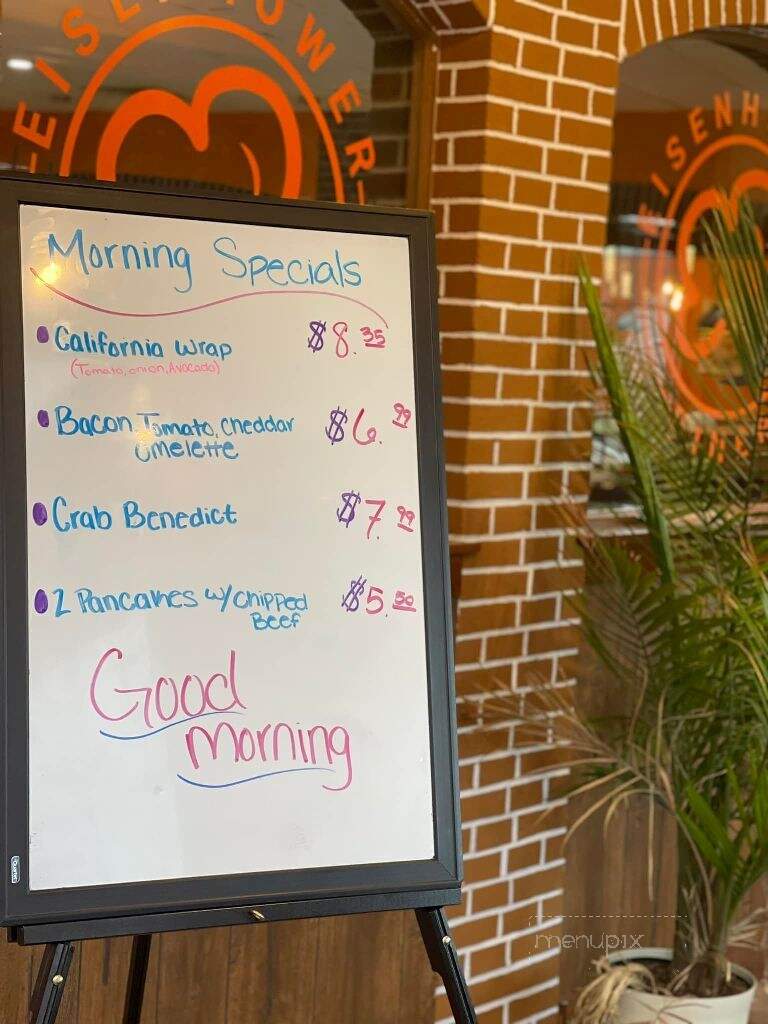 EISENHOWER
EISENH
THE R
Morning Specials
California Wrap $8.35
(Tomato, onion, Avocado)
Bacon, Tomato, Cheddar $6.99
Omelette
Crab Benedict $7.99
2 Pancakes w/ Chipped $5.50
Beef
Good
Morning
menupix